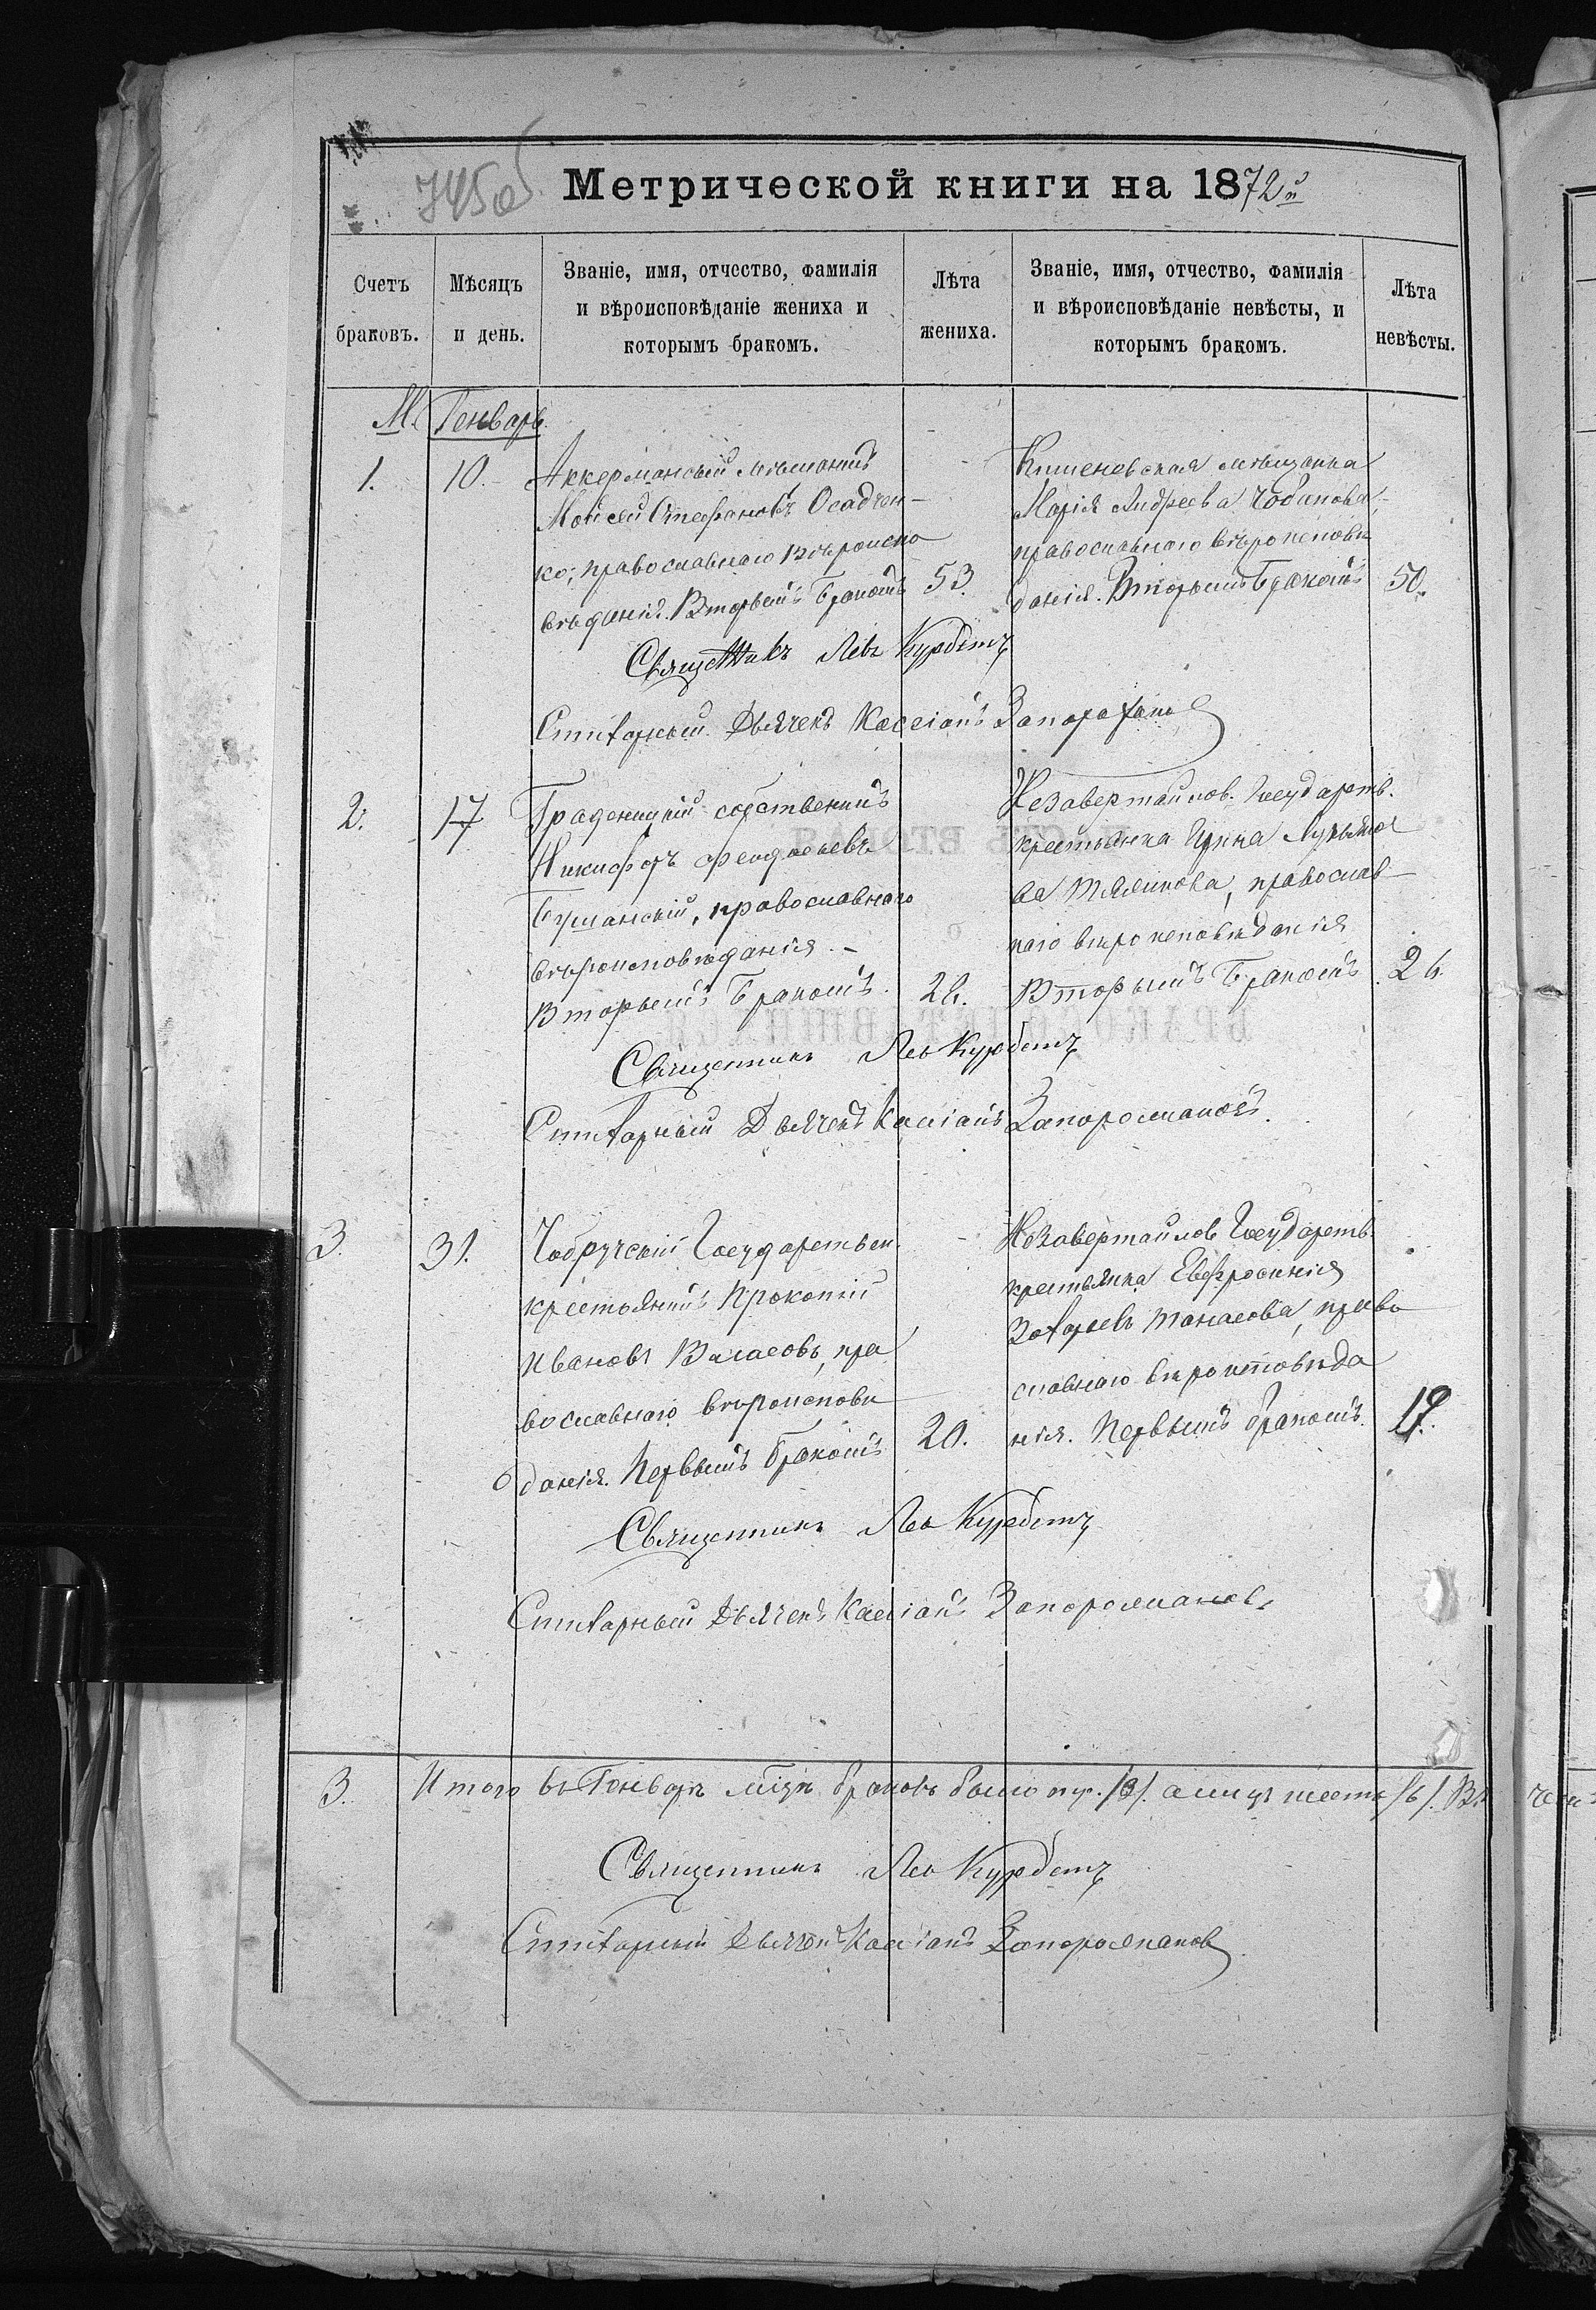 745об
Метрической книги на 1872й
Счетъ браковъ.
Мѣсяцъ и день.
Званіе, имя, отчество, фамилія
и вѣроисповѣданіе жениха и
которымъ бракомъ.
Лѣта
жениха.
Званіе, имя, отчество, фамилія
и вѣроисповѣданіе невѣсты, и
которымъ бракомъ.
Лѣта
невѣсты.
М. Генварь.
1.
10.
Аккерманскій мѣщанинъ
Мойсей Стефановъ Осадчен-
ко, православнаго вѣроиспо
вѣданія. Вторымъ бракомъ
53.
Кишеневская мѣщанка
Марія Андреева Чобанова,
православнаго вѣроисповѣ
данія. Вторымъ бракомъ
50.
Священникъ Левъ Курбетъ
Стихарный Дьячекъ Кассіанъ
2.
17
Граденицкій собственникъ
Никифоръ
православнаго
вѣроисповѣданія. –
Вторымъ бракомъ.
Незавертайлов. Государств.
крестьянка Ирина
православ
наго вѣроисповѣданія
Вторымъ бракомъ
26.
Священникъ Лев Курбетъ
Стихарный Дьячекъ Кассіанъ
3.
31.
Чобручскій Государствен.
крестьянинъ Прокопій
Ивановъ Власовъ, пра
вославнаго вѣроисповѣ
данія. Первымъ бракомъ
20.
Незавертайлов Государств.
крестьянка Евфросинія
Танасова, право
славнаго вѣроисповѣда
нія. Первымъ бракомъ.
Священникъ Лев Курбетъ
Стихарный Дьячекъ Кассіанъ
3.
Итого въ Генварѣ мцѣ браковъ было тр. /3/. а лицъ шесть /6/.
Священникъ Лев Курбетъ
Стихарный Дьячекъ Кассіанъ